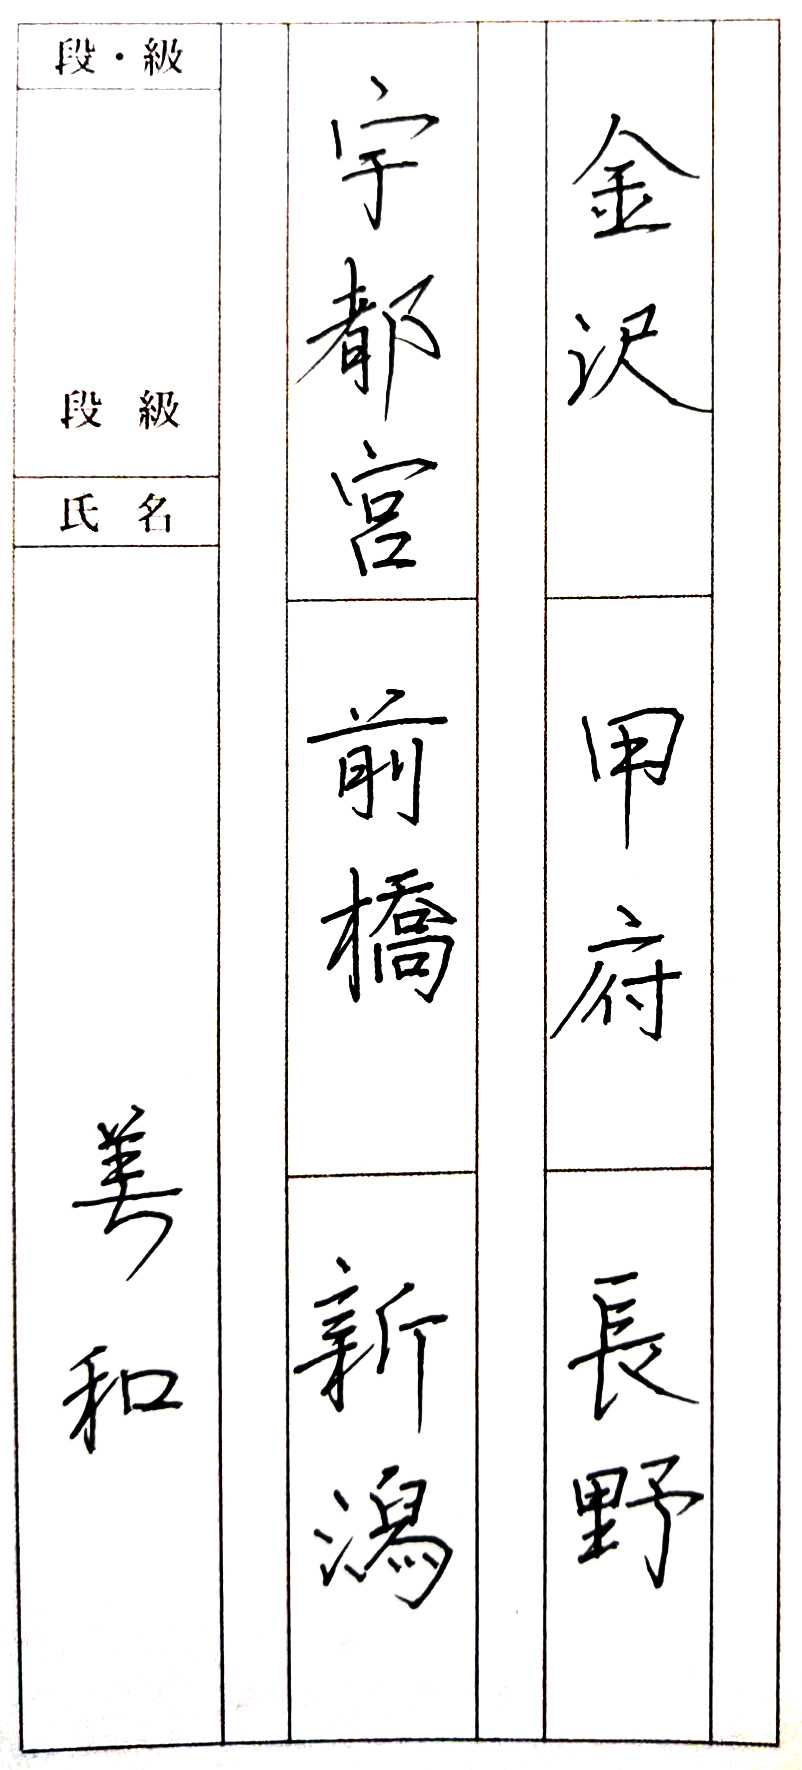 金沢
甲府
長野
宇都宮
前橋
新潟
段・級
段級
氏名
美和